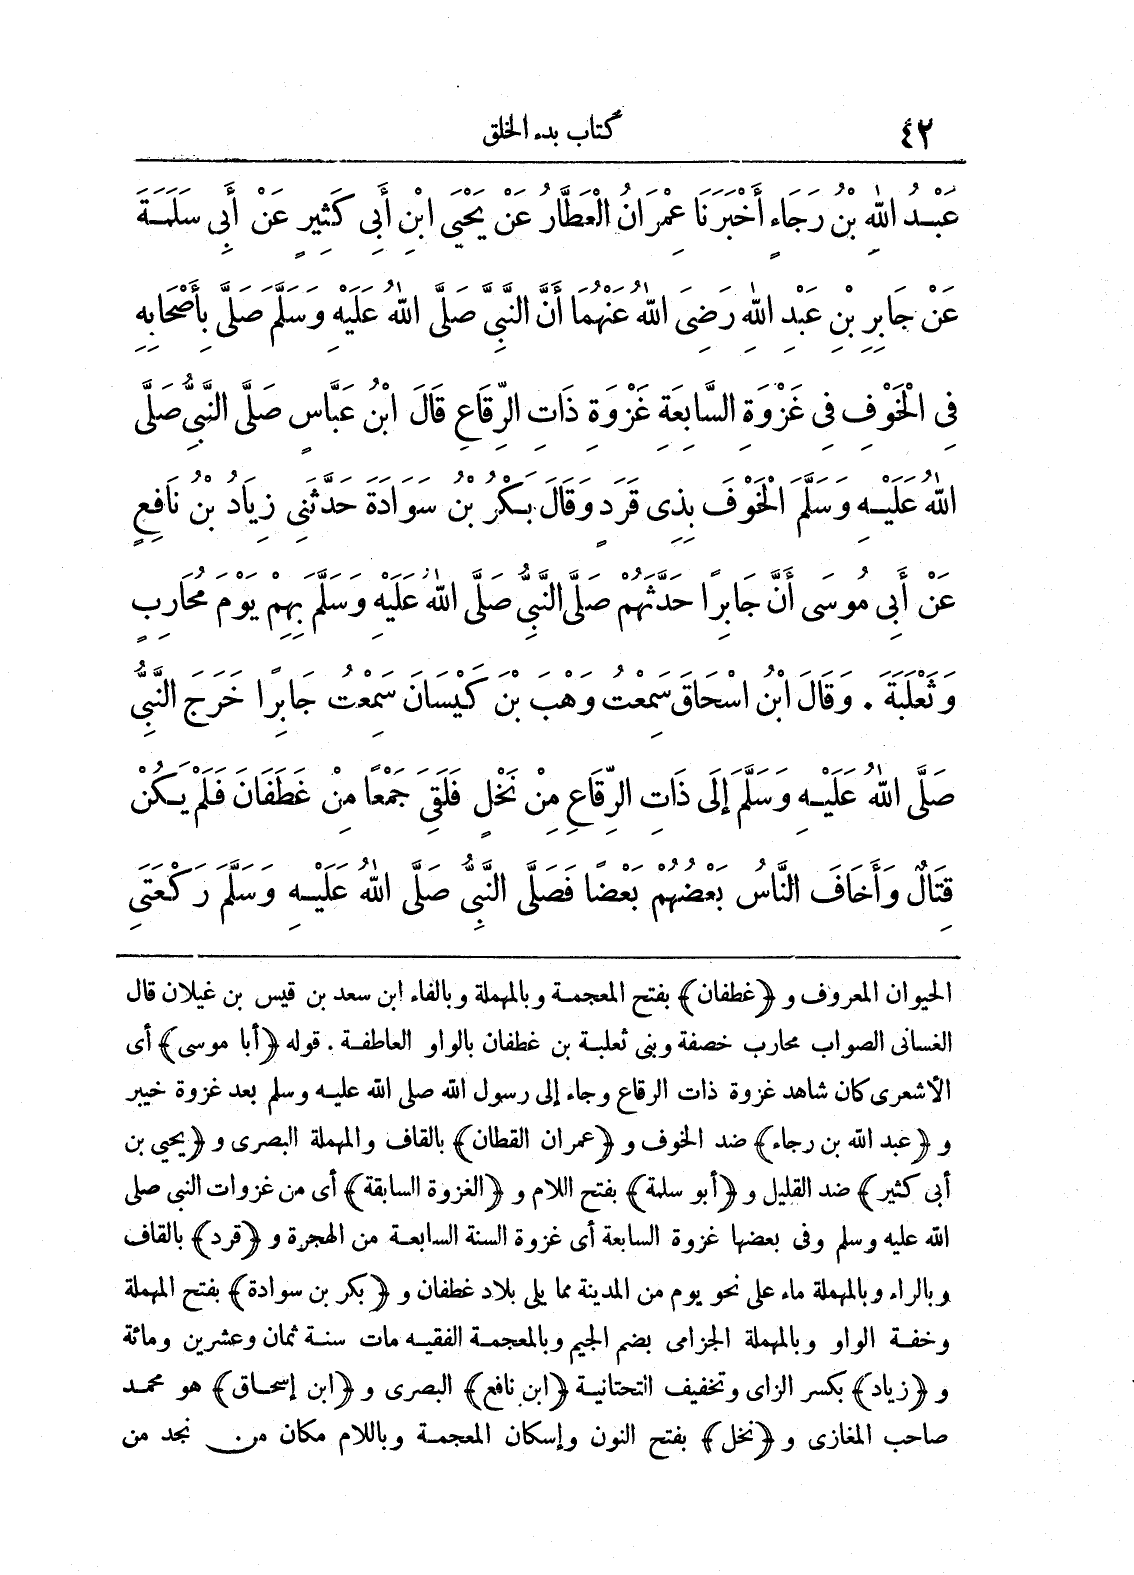 ٤٢ كتاب بدء الخلق
عَبْدُ اللهِ بْنُ رَجَاءٍ أَخْبَرَنَا عِمْرَانُ الْعَطَّارُ عَنْ يَحْيَى ابْنِ أَبِى كَثِيرٍ عَنْ أَبِى سَلَمَةَ
عَنْ جَابِرِ بْنِ عَبْدِ اللهِ رَضِىَ اللهُ عَنْهُمَا أَنَّ النَّبِىَّ صَلَّى اللهُ عَلَيْهِ وَسَلَّمَ صَلَّى بِأَصْحَابِهِ
فِى الْخَوْفِ فِى غَزْوَةِ السَّابِعَةِ غَزْوَةِ ذَاتِ الرِّقَاعِ قَالَ ابْنُ عَبَّاسٍ صَلَّى النَّبِىُّ صَلَّى
اللهُ عَلَيْهِ وَسَلَّمَ الْخَوْفَ بِذِى قَرَدٍ وَقَالَ بَكْرُ بْنُ سَوَادَةَ حَدَّثَنِى زِيَادُ بْنُ نَافِعٍ
عَنْ أَبِى مُوسَى أَنَّ جَابِرًا حَدَّثَهُمْ صَلَّى النَّبِىُّ صَلَّى اللهُ عَلَيْهِ وَسَلَّمَ بِهِمْ يَوْمَ مُحَارِبٍ
وَثَعْلَبَةَ . وَقَالَ ابْنُ اسْحَاقَ سَمِعْتُ وَهْبَ بْنَ كَيْسَانَ سَمِعْتُ جَابِرًا خَرَجَ النَّبِىُّ
صَلَّى اللهُ عَلَيْهِ وَسَلَّمَ إِلَى ذَاتِ الرِّقَاعِ مِنْ نَخْلٍ فَلَقِىَ جَمْعًا مِنْ غَطَفَانَ فَلَمْ يَكُنْ
قِتَالٌ وَأَخَافَ النَّاسُ بَعْضُهُمْ بَعْضًا فَصَلَّى النَّبِىُّ صَلَّى اللهُ عَلَيْهِ وَسَلَّمَ رَكْعَتَىِ
الحيوان المعروف و ﴿غطفان﴾ بفتح المعجمة وبالمهملة وبالفاء ابن سعد بن قيس بن غيلان قال
الغسانى الصواب محارب خصفة وبنى ثعلبة بن غطفان بالواو العاطفة . قوله ﴿أبا موسى﴾ أى
الأشعرى كان شاهد غزوة ذات الرقاع وجاء إلى رسول الله صلى الله عليه وسلم بعد غزوة خيبر
و ﴿عبد الله بن رجاء﴾ ضد الخوف و ﴿عمران القطان﴾ بالقاف والمهملة البصرى و ﴿يحيى بن
أبى كثير﴾ ضد القليل و ﴿أبو سلمة﴾ بفتح اللام و ﴿الغزوة السابقة﴾ أى من غزوات النبى صلى
الله عليه وسلم وفى بعضها غزوة السابعة أى غزوة السنة السابعة من الهجرة و ﴿قرد﴾ بالقاف
وبالراء وبالمهملة ماء على نحو يوم من المدينة مما يلى بلاد غطفان و ﴿بكر بن سوادة﴾ بفتح المهملة
وخفة الواو وبالمهملة الجزامى بضم الجيم وبالمعجمة الفقيه مات سنة ثمان وعشرين ومائة
و ﴿زياد﴾ بكسر الزاى وتخفيف التحتانية ﴿ابن نافع﴾ البصرى و ﴿ابن إسحاق﴾ هو محمد
صاحب المغازى و ﴿نخل﴾ بفتح النون وإسكان المعجمة وباللام مكان من نجد من